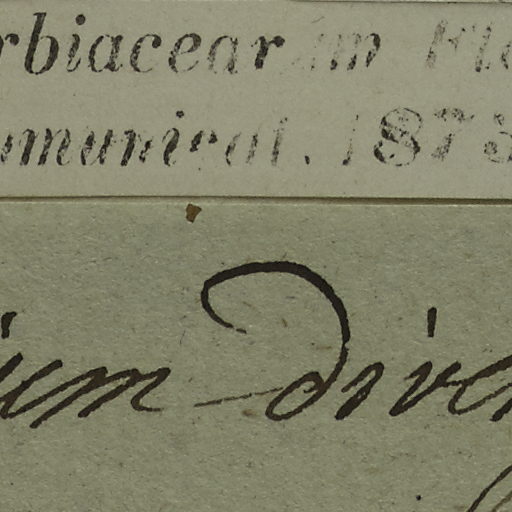 rbiacearum Flo
omunicat. 1873
ium diver